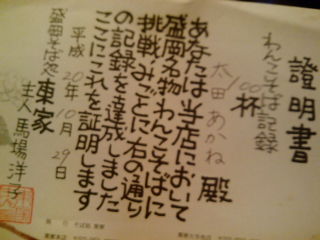 證明書
わんこそば記録
100杯
太田あかね 殿
あなたは当店において
盛岡名物わんこそばに
挑戦みごとに右の通り
の記録を達成しました
ここにこれを証明します
平成20年10月29日
盛岡そば処 東家
主人 馬場洋子